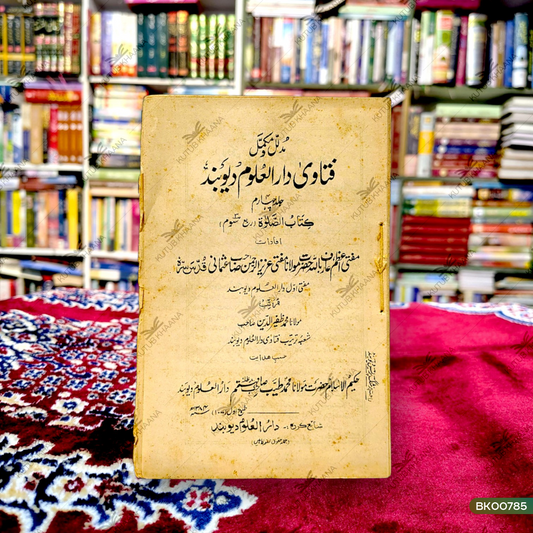 مدلل و مکمل
فتاویٰ دارالعلوم دیوبند
جلد چہارم
کتاب الصلوٰۃ (ربع سوم)
افادات
مفتی اعظم عارف باللہ حضرت مولانا مفتی عزیز الرحمن صاحب عثمانی قدس سرہ
مفتی اول دارالعلوم دیوبند
مرتب
مولانا محمد ظفیر الدین صاحب
شعبہ ترتیب فتاویٰ دارالعلوم دیوبند
حسب ہدایت
حکیم الاسلام حضرت مولانا محمد طیب صاحب مہتمم دارالعلوم دیوبند
طبع اول
شائع کردہ:۔ دارالعلوم دیوبند
KUTUBKHANA
BK00785